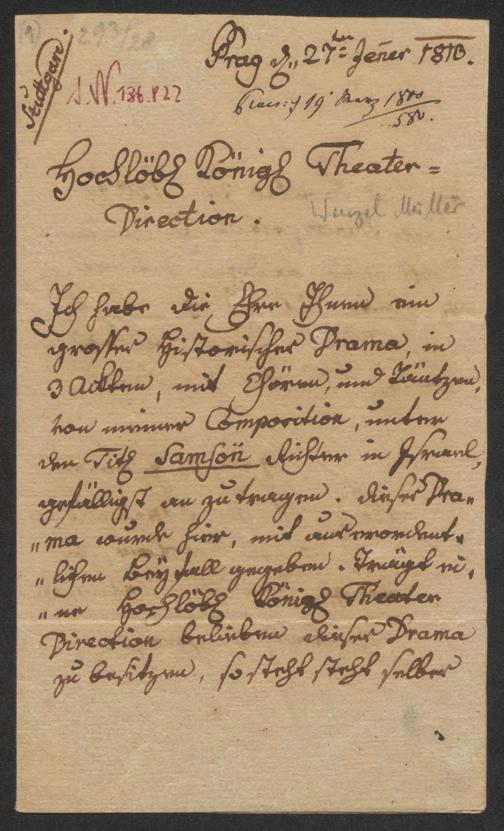 293/28
Stuttgart
Prag d. 27ten Jener 1810.
S.W. 136. P 22
19 März 1810
580.
Hochlöbl Königl Theater=
Direction.
Wenzel Müller
Ich habe die Ehre Ihnen ein
grosses Historisches Drama, in
3 Ackten, mit Chören, und Täntzen,
von meiner Composition, unter
den Titl Samson Richter in Israel,
gefälligst an zu tragen. dieses Dra„
„ma wurde hier, mit auserordent„
„lichen Beyfall gegeben. Trägt ei„
„ne Hochlöbl Königl Theater
Direction belieben dieses Drama
zu besitzen, so steht steht selbes